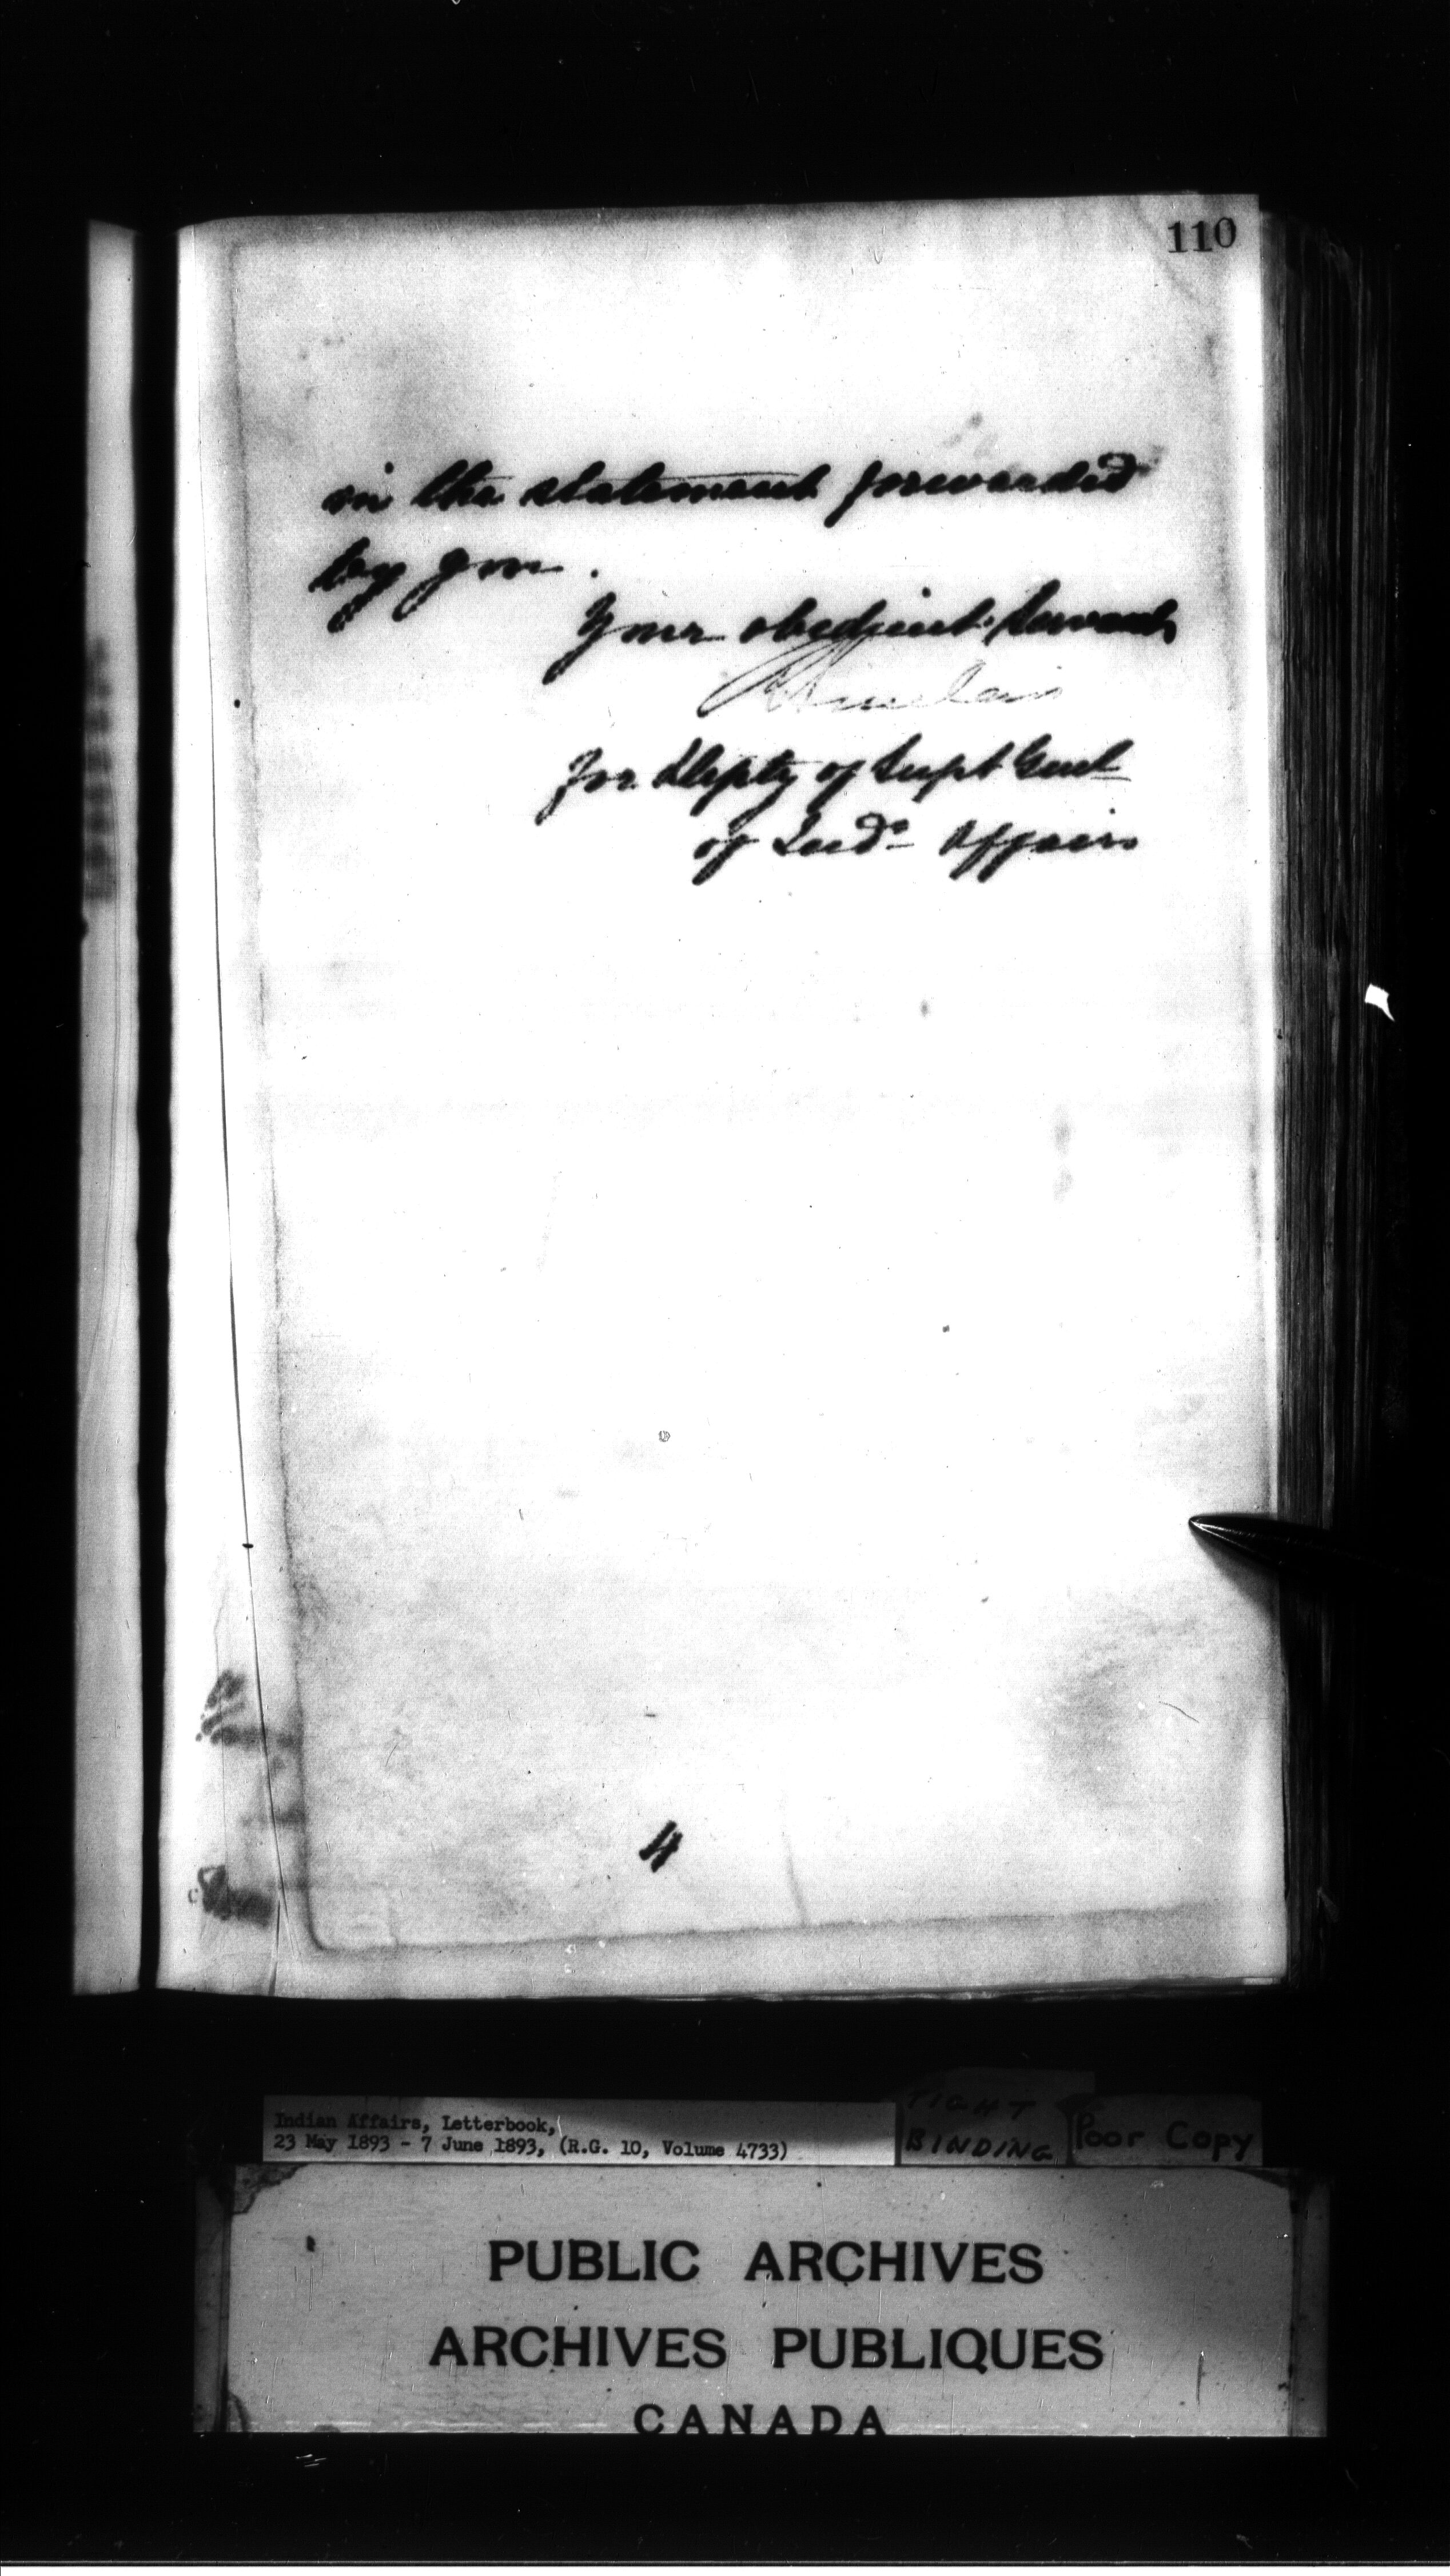 110
in the statement forwarded
by you.
Your obedient Servant
R Sinclair
for Depty of Supt Genl
of Inds Affairs
4
Indian Affairs, Letterbook,
23 May 1893 - 7 June 1893, (R.G. 10, Volume 4733)
TIGHT
BINDING
Poor Copy
PUBLIC ARCHIVES
ARCHIVES PUBLIQUES
CANADA